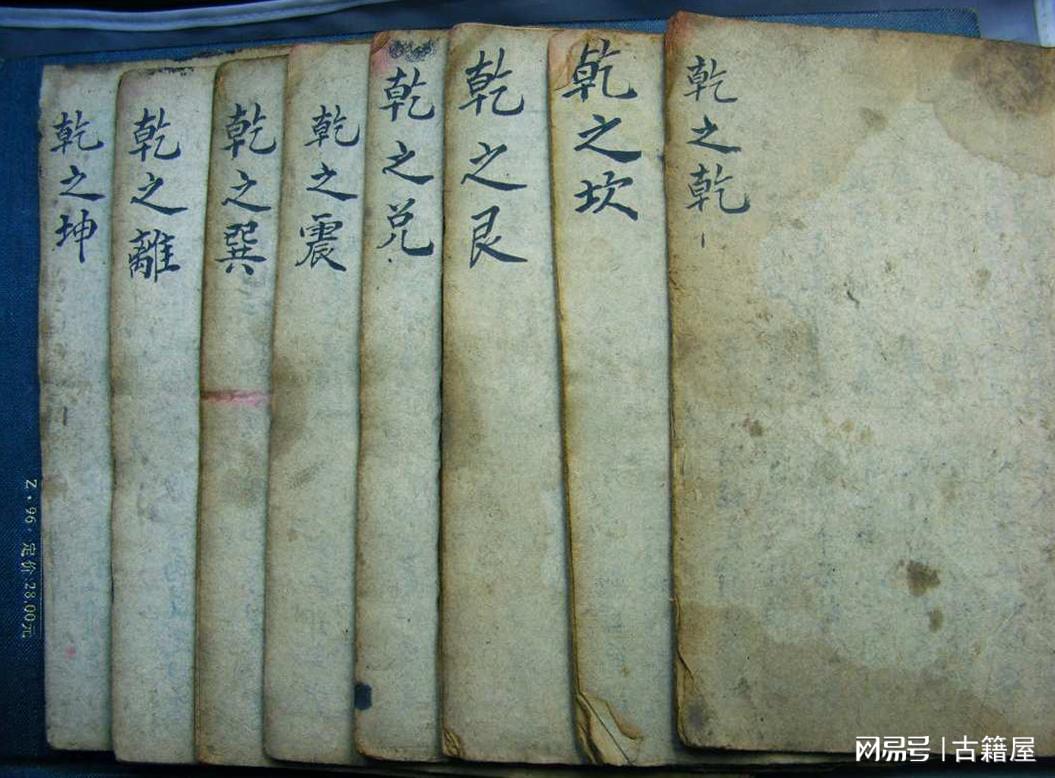 乾之乾
乾之坎
乾之艮
乾之兑
乾之震
乾之巽
乾之離
乾之坤
Z·96·定价:28.00元
网易号 | 古籍屋